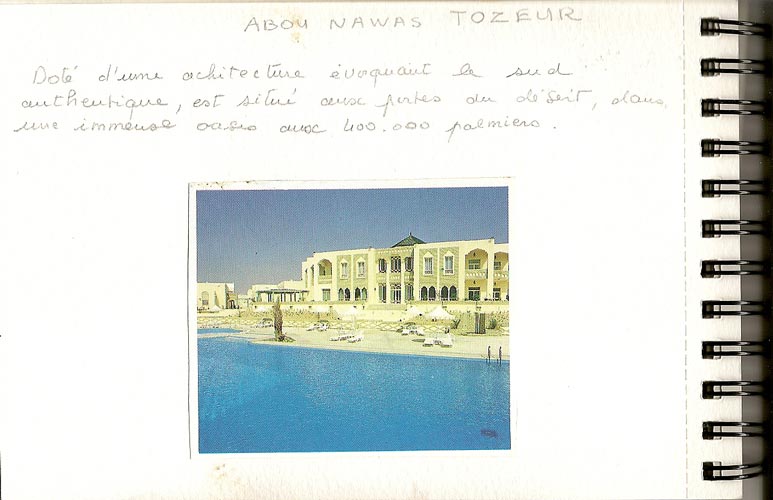 ABOU NAWAS TOZEUR
Doté d'une achitecture évoquant le sud
authentique, est situé aux portes du désert, dans
une immense oasis aux 400.000 palmiers.